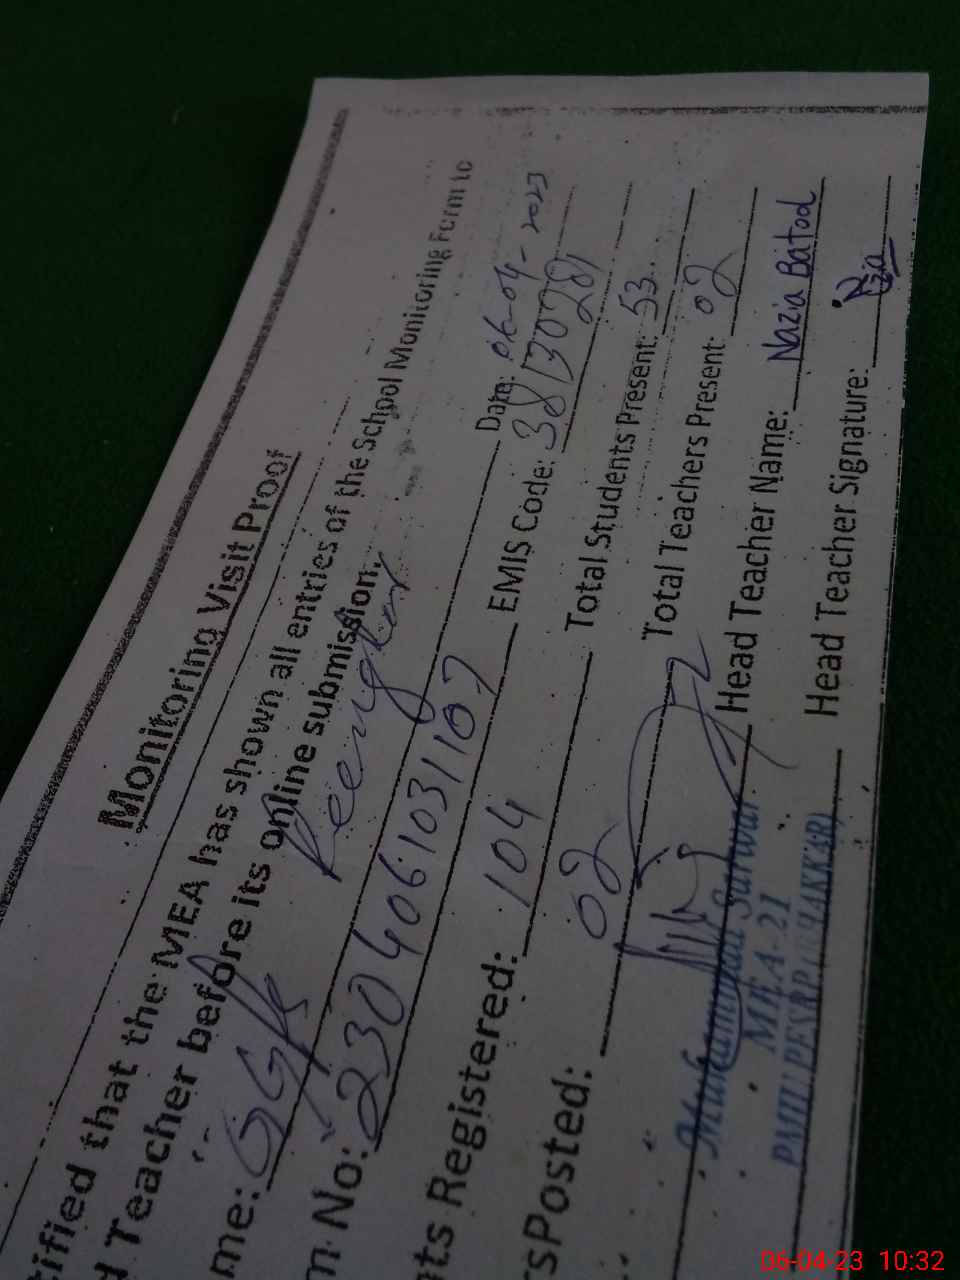 Monitoring Visit Proof
tified that the MEA has shown all entries of the School Monitoring Form to
d Teacher before its online submission.
me: Date: 06-04-2023
m No: 2304061031107 EMIS Code: 38130281
nts Registered: 104 Total Students Present: 53
rsPosted: 02 Total Teachers Present: 02
Head Teacher Name: Nazia Batool
Muhammad Sarwar
MEA-21
Head Teacher Signature:
06-04-23 10:32